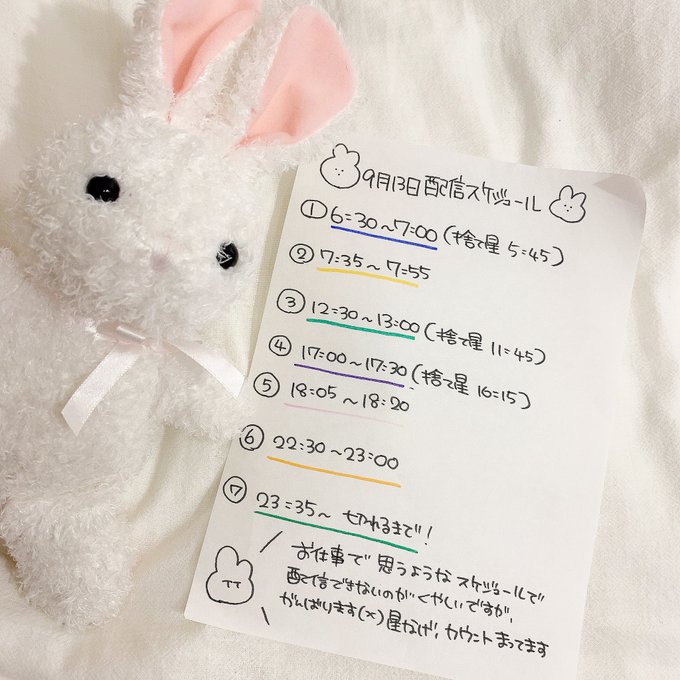 9月13日配信スケジュール
① 6:30〜7:00 (捨て星 5:45)
② 7:35〜7:55
③ 12:30〜13:00 (捨て星 11:45)
④ 17:00〜17:30 (捨て星 16:15)
⑤ 18:05〜18:20
⑥ 22:30〜23:00
⑦ 23:35〜 切れるまで!
お仕事で思うようなスケジュールで
配信できないのがくやしいですが、
がんばります(×)星なげ、カウントまってます